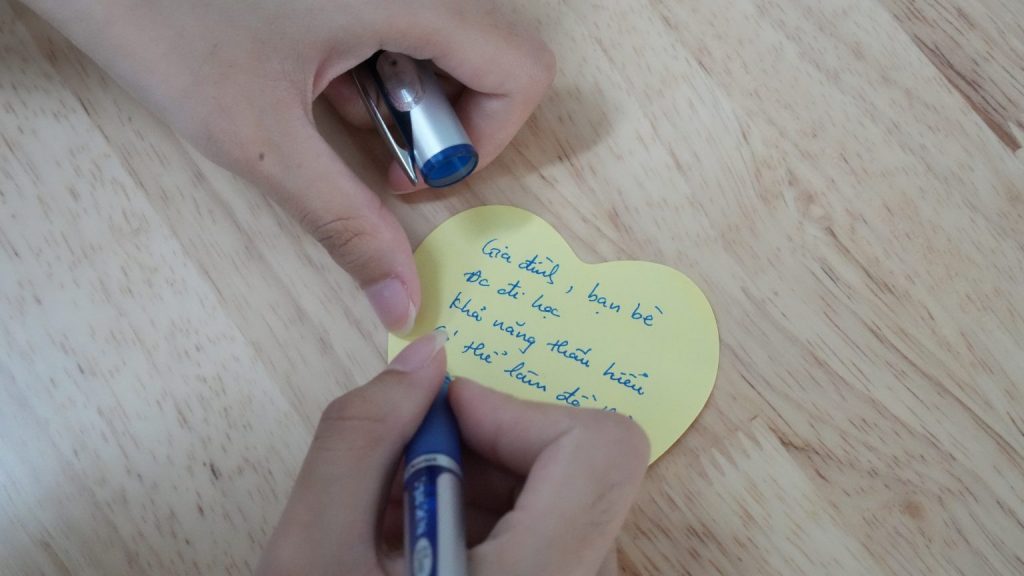 Gia đình, bạn bè
Đc đi học
Khả năng thấu hiểu
Có thể làm đồ